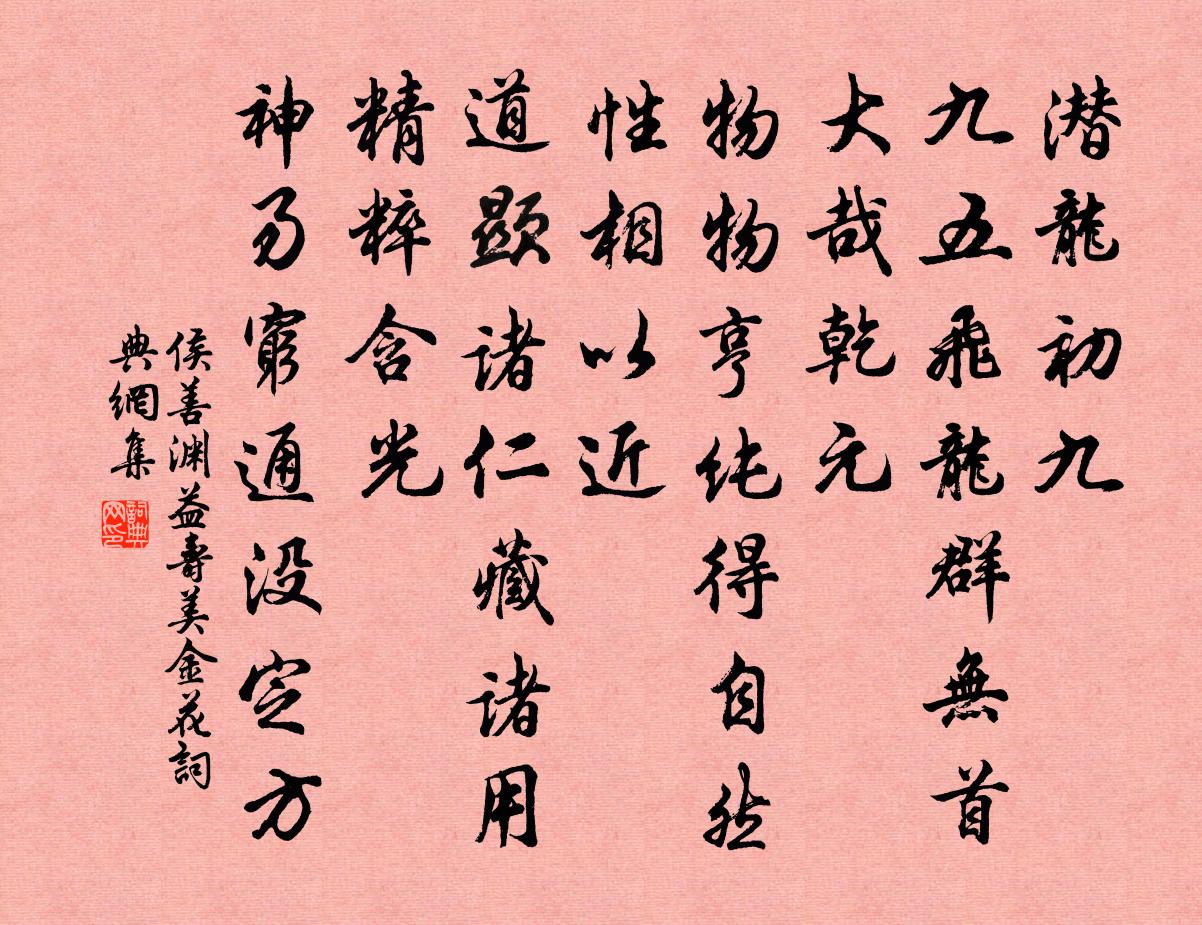 潜龍初九
九五飛龍群無首
大哉乾元
物物亨纯得自然
性相以近
道顯諸仁藏諸用
精粹含光
神易窮通没定方
侯善渊益壽美金花詞
典網集
詞典网印